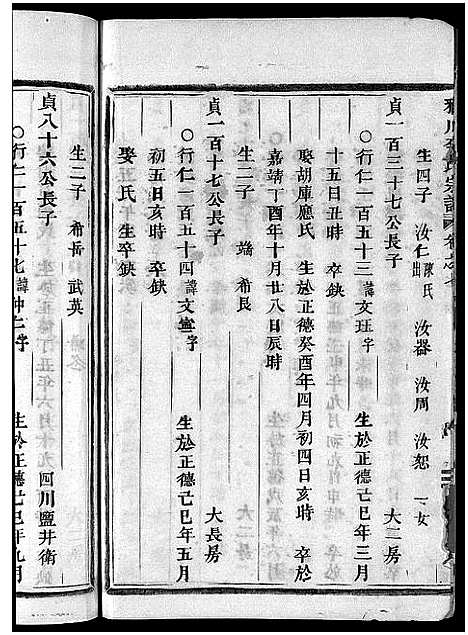 生四子 汝仁陳氏出 汝器 汝周 汝恕 一女
貞一百三十七公長子 大二房
○行仁一百五十三諱文班字 生於正德己巳年三月
十五日丑時 卒缺
娶胡庫應氏 生於正德癸酉年四月初四日亥時 卒於
嘉靖丁酉年十月廿八日辰時
生二子 端 希長
貞一百十七公長子 大長房
○行仁一百五十四諱文 字 生於正德己巳年五月
初五日亥時 卒缺
娶 氏 生卒缺
生二子 希岳 武英
貞八十六公長子 四川鹽井衛
○行仁一百五十七諱仲仁字 生於正德己巳年九月